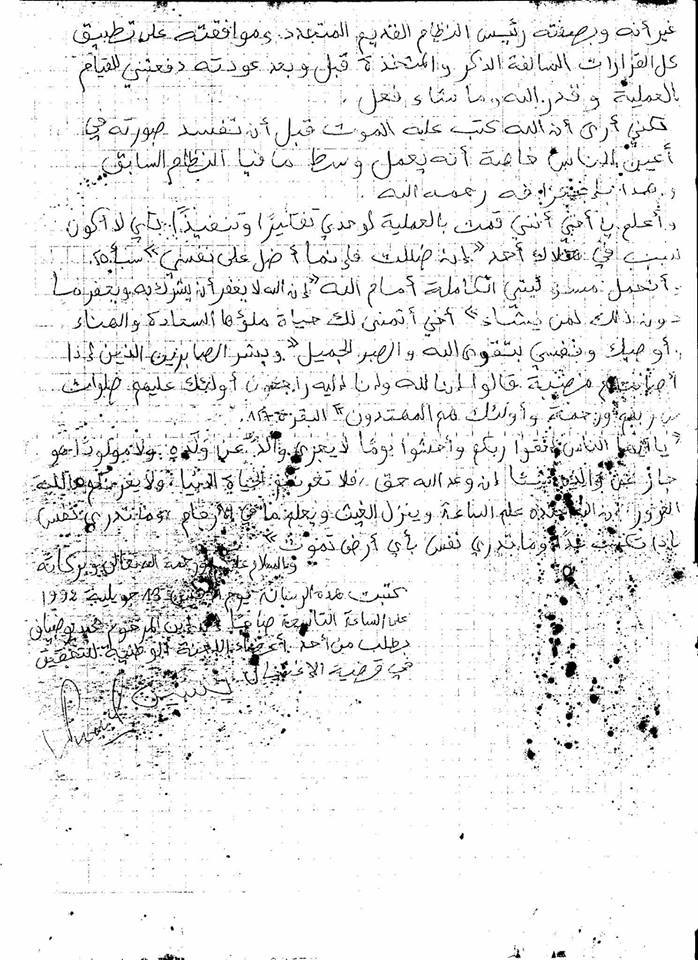 غير أنه وبصفته رئيس النظام القديم المتجدد وموافقته على تطبيق
كل القرارات السالفة الذكر والمتخذة قبل وبعد عودته دفعتني للقيام
بالعملية وقدر الله وما شاء فعل.
لكني أرى أن الله كتب عليه الموت قبل أن تفسد صورته في
أعين الناس خاصة أنه يعمل وسط مافيا النظام السابق
رحمه الله.
وأعلم يا أخي أنني قمت بالعملية لوحدي تفكيرا وتنفيذا لكي لا أكون
سبب في هلاك أحد «إن ضللت فإنما أضل على نفسي» سبأ
وأتحمل مسؤوليتي الكاملة أمام الله «إن الله لا يغفر أن يشرك به ويغفر ما
دون ذلك لمن يشاء» أخي أتمنى لك حياة ملؤها السعادة والهناء
وأوصيك ونفسي بتقوى الله والصبر الجميل «وبشر الصابرين الذين إذا
أصابتهم مصيبة قالوا إنا لله وإنا إليه راجعون أولئك عليهم صلوات
من ربهم ورحمة وأولئك هم المهتدون» البقرة
«يا أيها الناس اتقوا ربكم وأخشوا يوما لا يجزي والد عن ولده ولا مولود هو
جاز عن والده شيئا إن وعد الله حق فلا تغرنكم الحياة الدنيا ولا يغرنكم بالله
الغرور إن الله عنده علم الساعة وينزل الغيث ويعلم ما في الأرحام وما تدري نفس
ماذا تكسب غدا وما تدري نفس بأي أرض تموت»
والسلام عليكم ورحمة الله تعالى وبركاته
كتبت هذه الرسالة يوم 13 جويلية 1992
على الساعة التاسعة صباحا المرحوم محمد بوضياف
بطلب من أحد أعضاء اللجنة الوطنية للتحقيق
في قضية الاغتيال